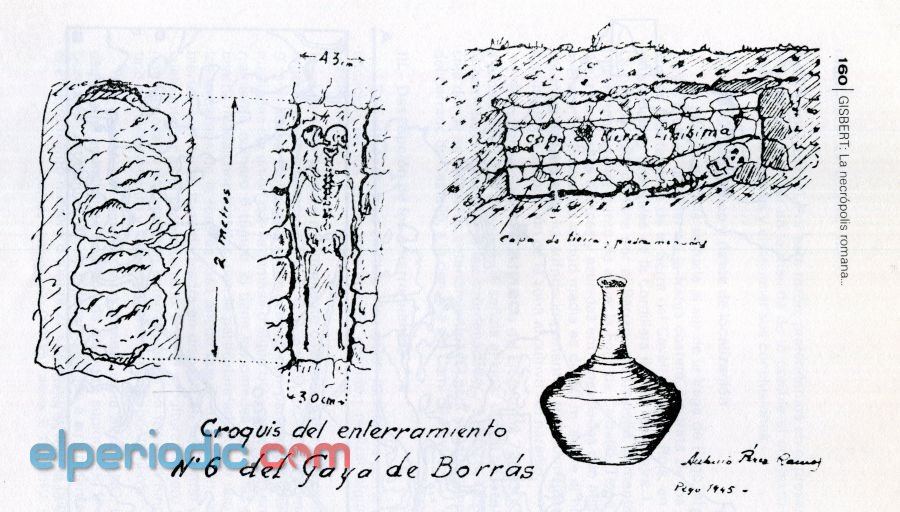 43 cm
2 metros
30 cm
capa de tierra laibima
capa de tierra y pedra
Croquis del enterramiento
Nº6 del Gayá de Borrás
elperiodic.com
Antonio Pérez Ramos
Pego 1945 -
160 | GISBERT: La necrópolis romana...